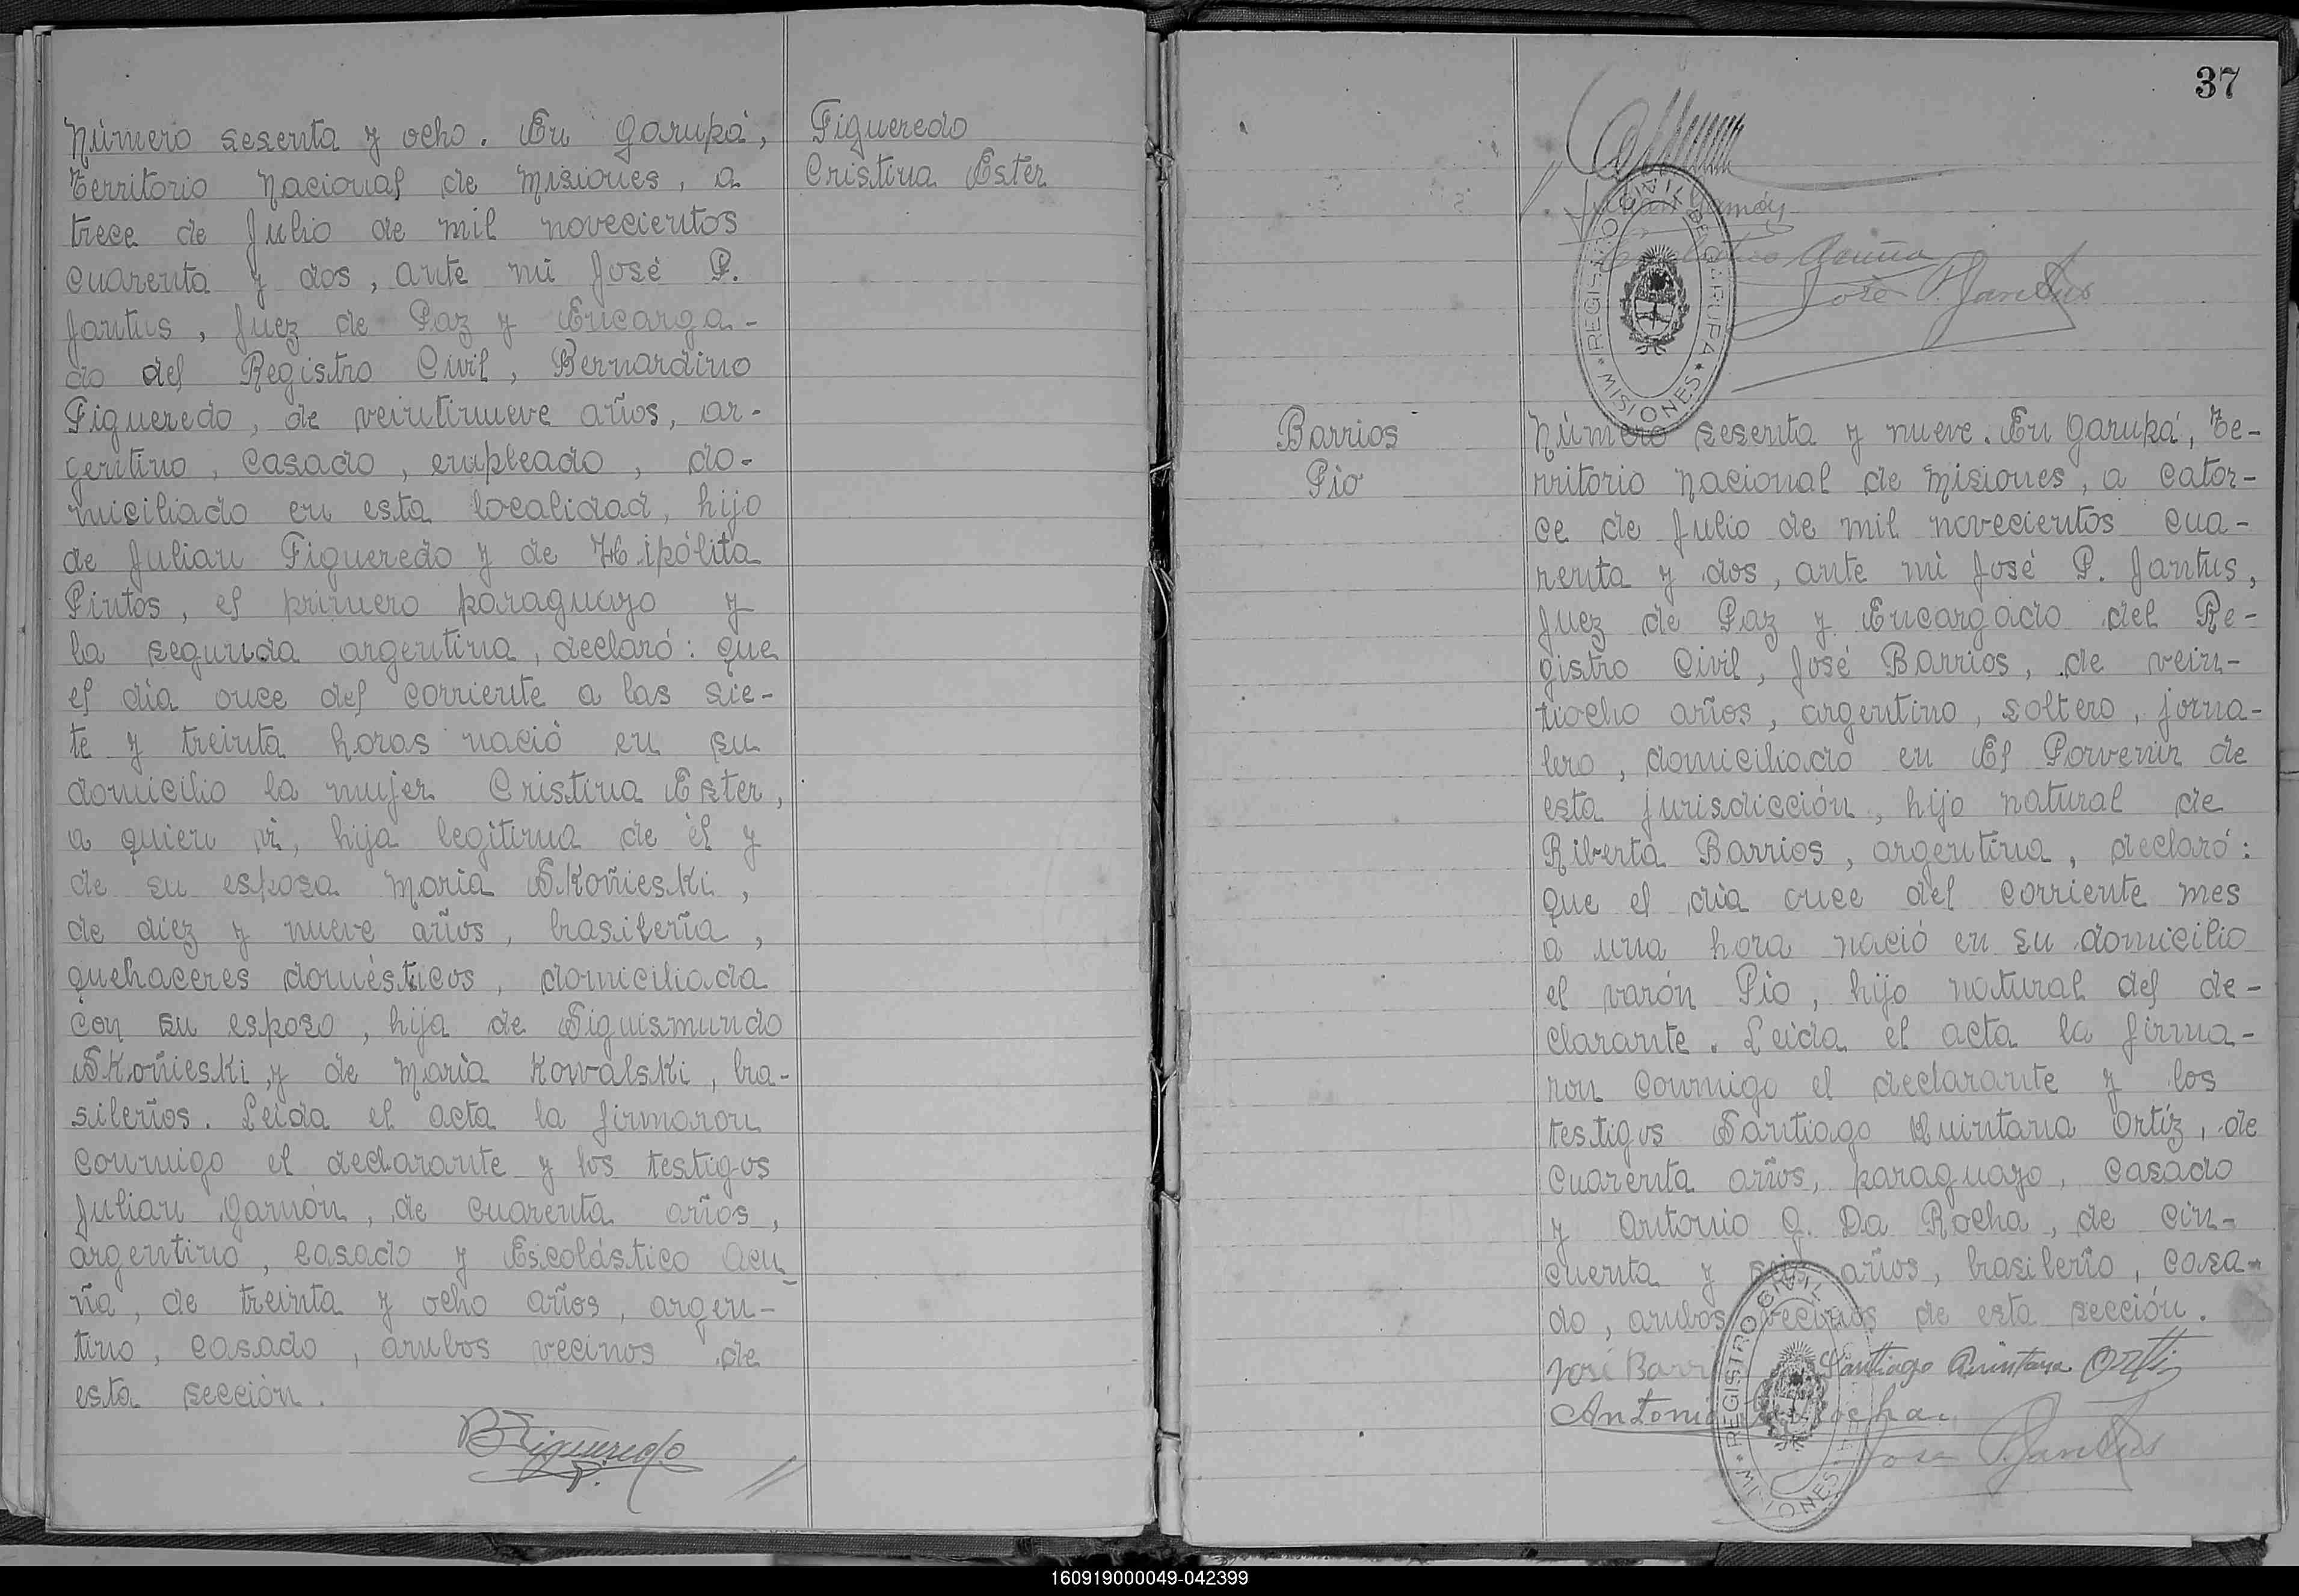 Número sesenta y ocho. En Garupá,
Territorio Nacional de Misiones, a
trece de Julio de mil novecientos
cuarenta y dos, ante mi José P.
Jantus, Juez de Paz y Encarga-
do del Registro Civil, Bernardino
Figueredo, de veintinueve años, ar-
gentino, casado, empleado, do-
miciliado en esta localidad, hijo
de Julian Figueredo y de Hipólita
Pintos, el primero paraguayo y
la segunda argentina, declaró: que
el día once del corriente a las sie-
te y treinta horas nació en su
domicilio la mujer Cristina Ester,
a quien vi, hija legitima de él y
de su esposa Maria Skoñieski,
de diez y nueve años, brasileña,
quehaceres domésticos, domiciliada
con su esposo, hija de Siguismundo
Skoñieski y de Maria Kowalski, bra-
sileños. Leida el acta la firmaron
conmigo el declarante y los testigos
Julian Gamón, de cuarenta años,
argentino, casado y Escolástico Acu-
ña, de treinta y ocho años, argen-
tino, casado, ambos vecinos de
esta sección.
BFigueredo
Figueredo
Cristina Ester
37
Acuña
José P. Jantus
REGISTRO CIVIL DE GARUPA
* MISIONES *
Barrios
Pio
Número sesenta y nueve. En Garupá, Te-
rritorio Nacional de Misiones, a cator-
ce de Julio de mil novecientos cua-
renta y dos, ante mi José P. Jantus,
Juez de Paz y Encargado del Re-
gistro Civil, José Barrios, de vein-
tiocho años, argentino, soltero, jorna-
lero, domiciliado en El Porvenir de
esta jurisdicción, hijo natural de
Riberta Barrios, argentina, declaró:
que el día once del corriente mes
a una hora nació en su domicilio
el varón Pio, hijo natural del de-
clarante. Leida el acta la firma-
ron conmigo el declarante y los
testigos Santiago Quintana Ortíz, de
cuarenta años, paraguayo, casado
y Antonio G. Da Rocha, de cin-
cuenta y seis años, brasileño, casa-
do, ambos vecinos de esta sección.
José Barr Santiago Quintana Ortiz
Antonio Rocha.
José P. Jantus
REGISTRO CIVIL
* MISIONES
160919000049-042399